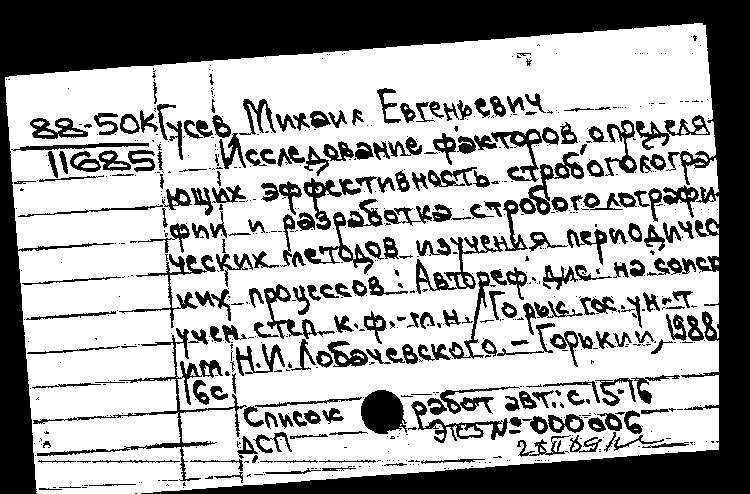 88-50К
11685
Гусев Михаил Евгеньевич
Исследование факторов определя-
ющих эффективность стробогологра-
фии и разработка стробоголографи-
ческих методов изучения периодичес-
ких процессов: Автореф. дис. на соиск.
учен. степ. к.ф.-м.н. / Горьк. гос. ун-т
им. Н.И. Лобачевского. – Горький, 1988.
16с.
Список работ авт.: с.15-16
ДСП Экз № 000006